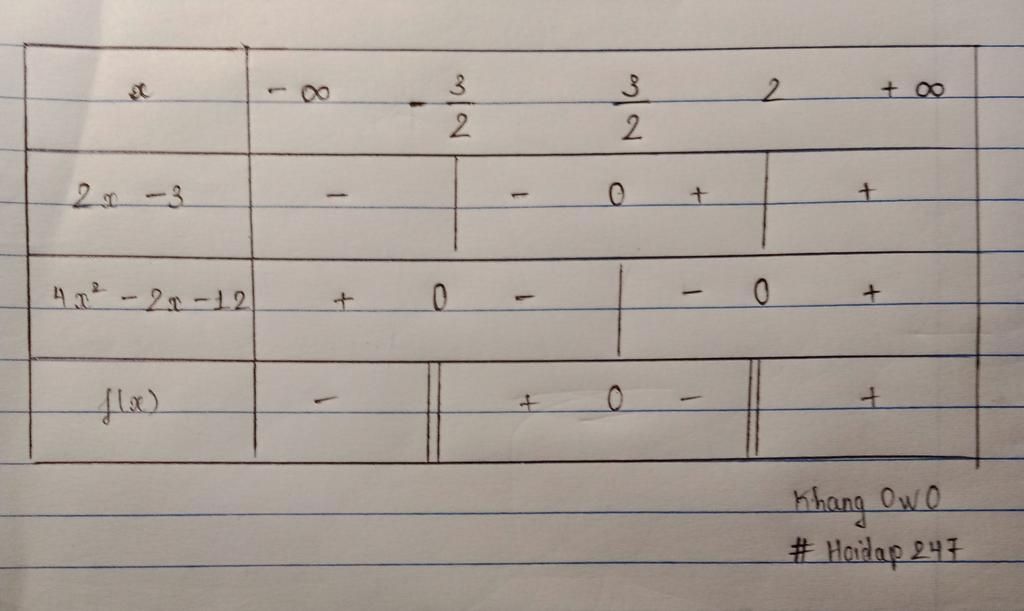 x - ∞ - 3/2 3/2 2 + ∞
2x - 3 - | - 0 + | +
4x² - 2x - 12 + 0 - | - 0 +
f(x) - || + 0 - || +
Khang OwO
# Hoidap 247